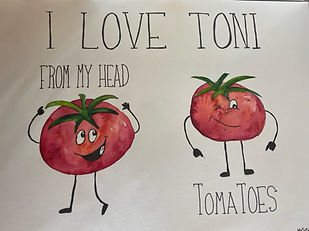 I LOVE TONI
FROM MY HEAD
TOMATOES